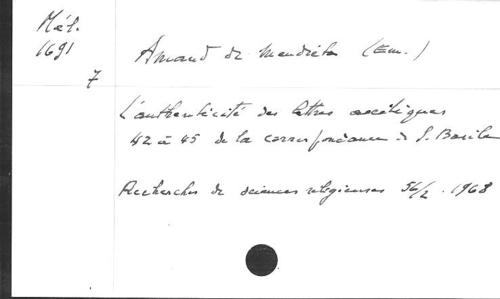 Mél.
1691
7
Amand de Mendieta (Em.)
L'authenticité des lettres ascétiques
42 à 45 de la correspondance de S. Basile
Recherches de sciences religieuses 56/2. 1968